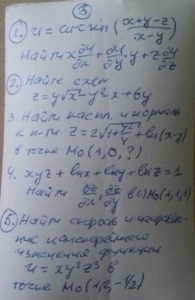 ③
1. u = arcsin (x+y-z / x-y)
Найти x ∂u/∂x + ∂u/∂y · y + z ∂u/∂z
2. Найти экст
z = y√x - y² x + 6y
3. Найти кас. пл. и нормаль
к п-ти z = 2√ + ln(x-y)
в точке M₀(1,0,?)
4. xyz + lnx + lny + lnz = 1
Найти ∂z/∂x, ∂z/∂y в (·) M₀(1,1,1)
⑤. Найти скорость и направле
ние наискорейшего
изменения функции
u = xy²z³ в
точке M₀(1,2,-1/2)